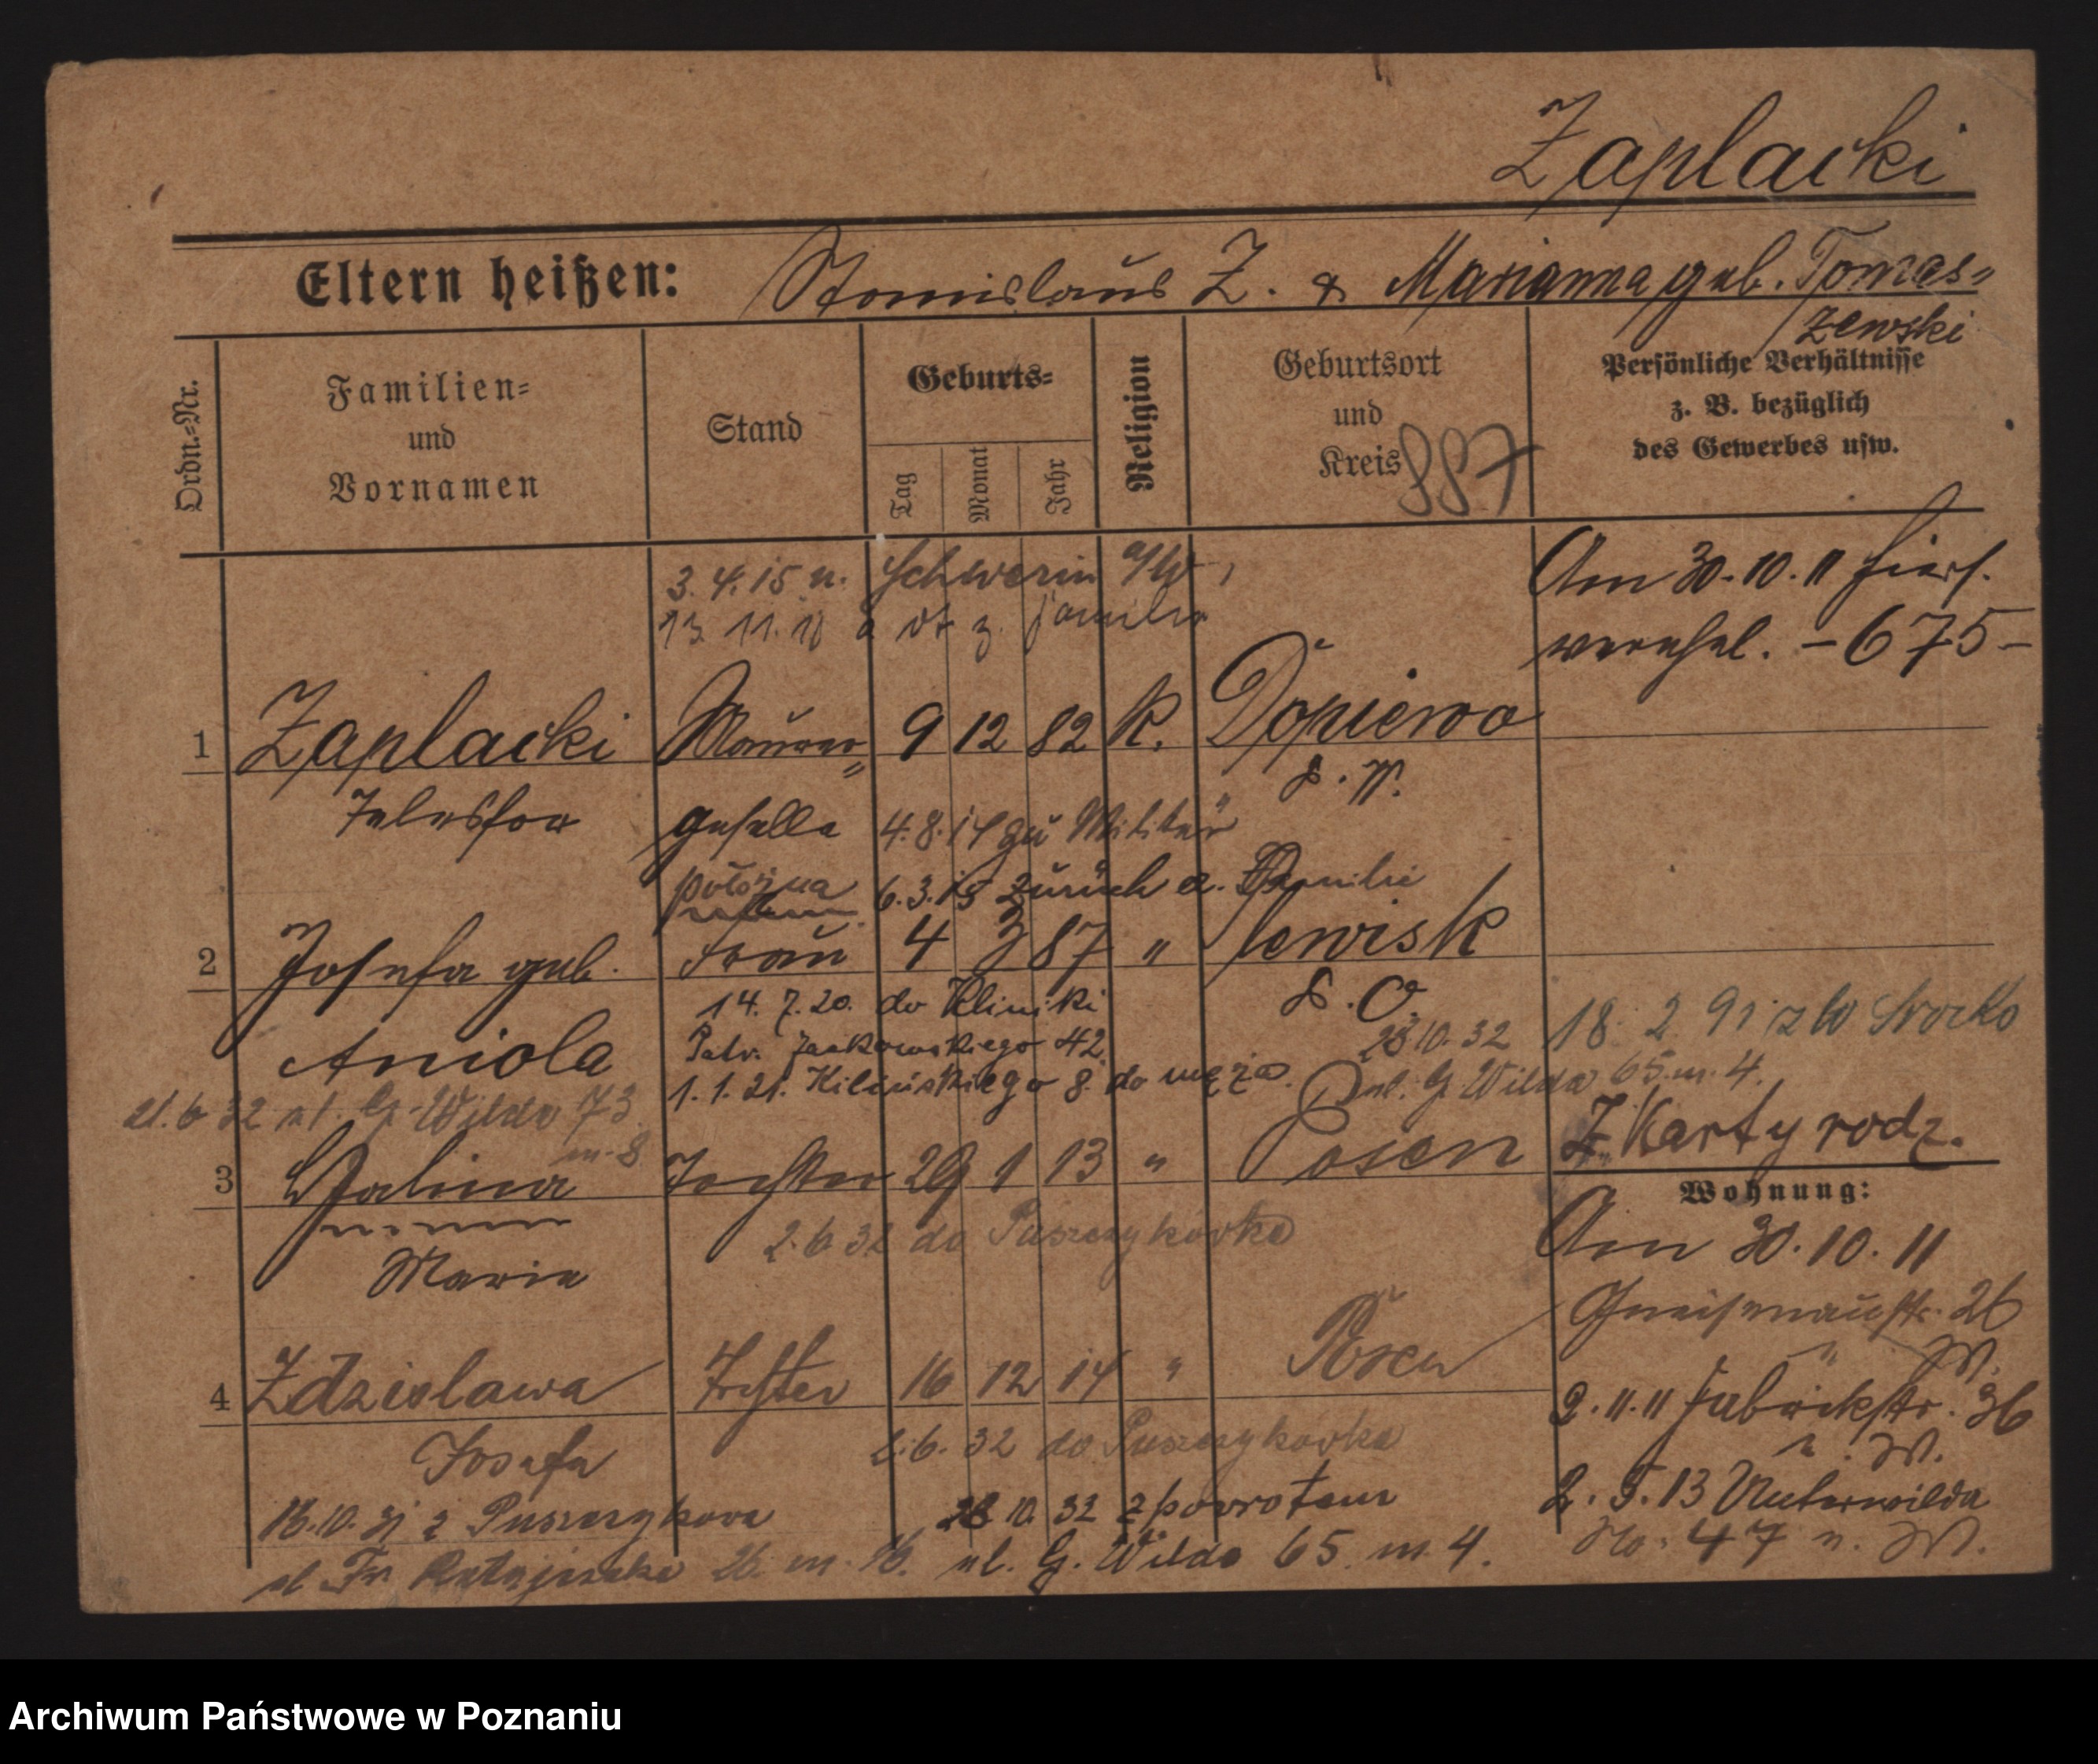 Zaplacki
Eltern heißen: Stanislaus Z. & Marianna geb. Tomas=
zewski
Ordn.=Nr.
Familien=
und
Vornamen
Stand
Geburts=
Tag
Monat
Jahr
Religion
Geburtsort
und
Kreis
887
Persönliche Verhältnisse
z. B. bezüglich
des Gewerbes usw.
3.4.15 n. Schwerin a/W,
13.11.18 z. Familie
Am 30.10.11 hiers.
verehel. -675-
1 Zaplacki Maurer= 9 12 82 K. Dopiewo
P. W.
Telesfor geselle 4.8.14 zu Militär
położna 6.3.15 zurück a. Familie
2 Josefa geb. Frau 4 3 87 " Jewisk
P. O
Aniola
14. 7. 20. do Kliniki
Jackowskiego 42
1.1.21. Kilińskiego 8. do męża
28 10. 32
ul. G. Wilda 65 m. 4.
18. 2 91
Z Karty rodz.
21.6 32 ul. G. Wilda 73
m. 8
3 Halina Tochter 29 1 13 " Posen
Maria
2.6 32 do Puszczykówka
Wohnung:
Am 30.10.11
Gneisenaustr. 26
" W.
4 Zdzislawa Tochter 16 12 14 " Posen
Josefa
2.6. 32 do Puszczykówka
2.11.11 Fabrikstr. 36
n. W.
2. 5. 13 Unterwilda
No. 47 n. W.
z Puszczykowa
28 10. 32 z powrotem
ul Fr. Ratajczaka 26 m. 16. ul. G. Wilda 65 m. 4.
Archiwum Państwowe w Poznaniu